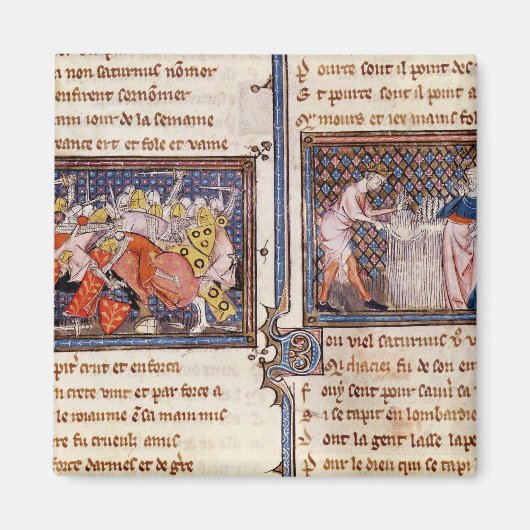 en non saturnus nõmer
enfirent sornõmer
ann iour de la semaine
vance ert et fole et vame
pit crut et enforca
en crete vint et par force a
le roiaume ẽ sa main mis
re fu crueuls amis
force darmes et de gr̃e
Pource sont il point des
Et pource sont il point a
mours et lex mains fol
ou viel saturnus
chaciez fu de son em
ouy sent pour sauu sa
se tapit en lombardie
ont la gent lasse lape
Pour le dieu qui se tapi